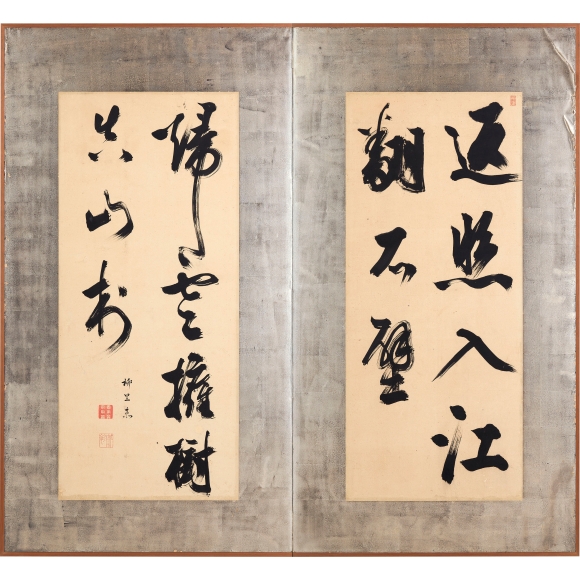 返照入江
翻石壁
歸雲擁樹
失山村
柳里恭